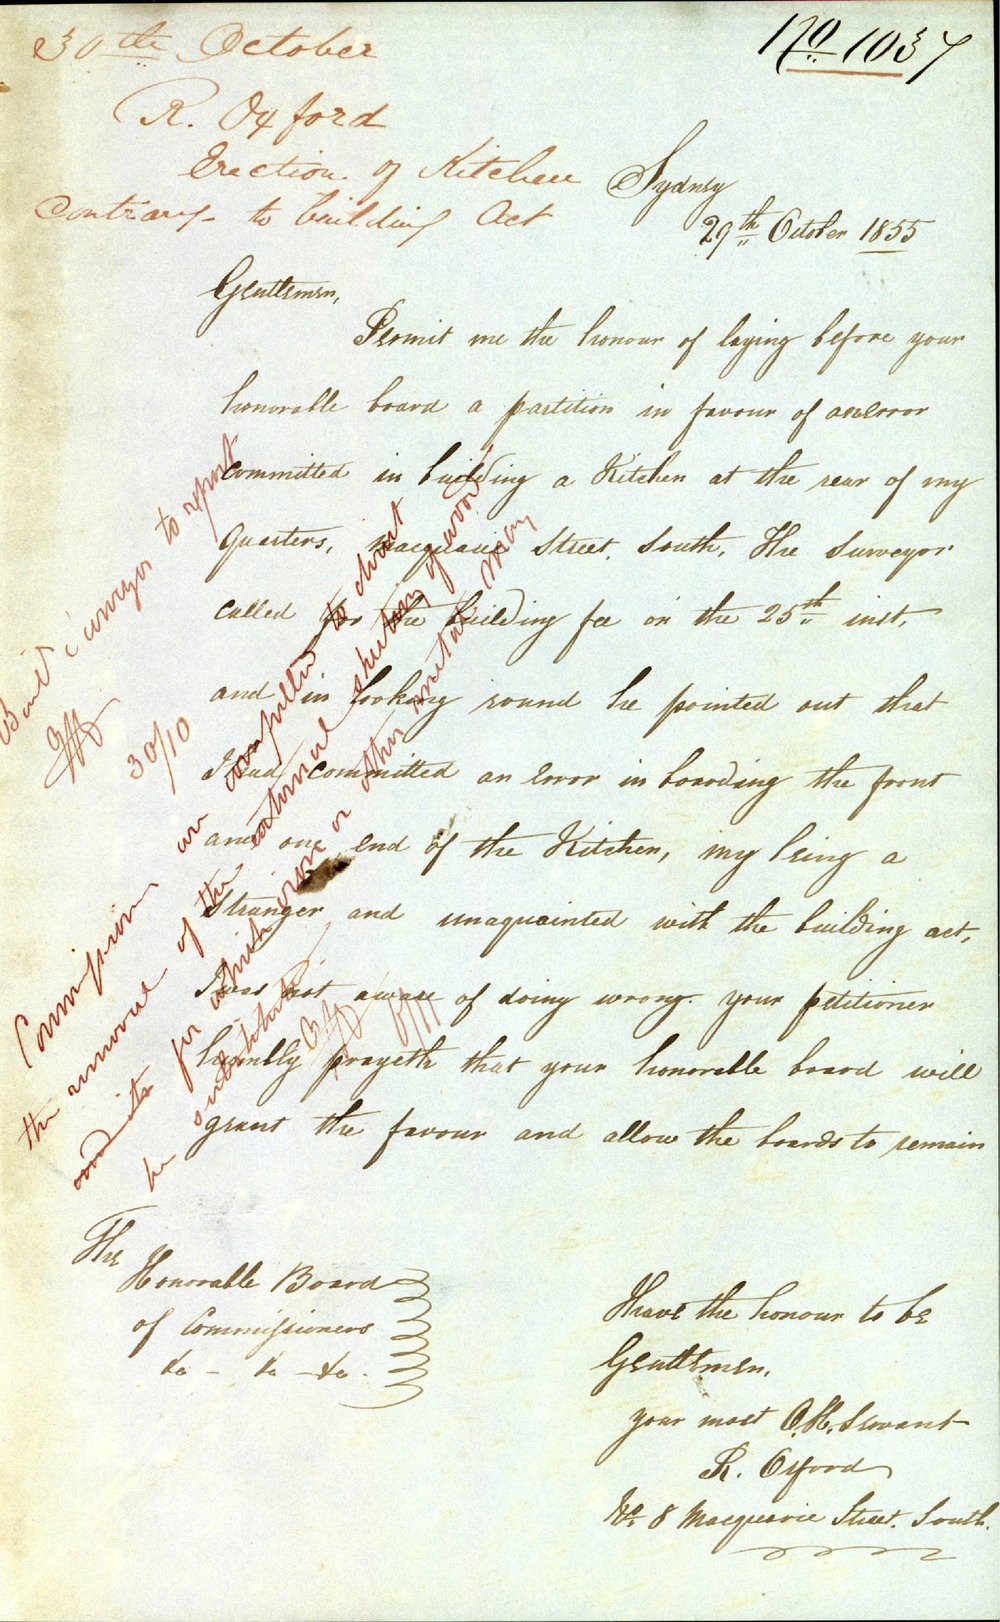 30th October
No 1037
R. Oxford
Erection of Kitchen
Contrary to building Act
Sydney
29th October 1855
Gentlemen,
Permit me the honour of laying before your
honorable board a partition in favour of an error
committed in building a Kitchen at the rear of my
Quarters, Macquarie Street South. The Surveyor
called for the building fee on the 25th inst,
and in looking round he pointed out that
I had committed an error in boarding the front
and one end of the Kitchen, my being a
Stranger and unaquainted with the building act,
I was not aware of doing wrong. your petitioner
humbly prayeth that your honorable board will
grant the favour and allow the boards to remain
The
Honorable Board
of Commissioners
&c - &c - &c.
I have the honour to be
Gentlemen,
your most O.H. Servant
R. Oxford
No. 8 Macquarie Street. South.
Build Surveyor to report
30/10
Commissioners are compelled to direct
the removal of the external sheeting of wood
for which iron or other metal may
be substituted